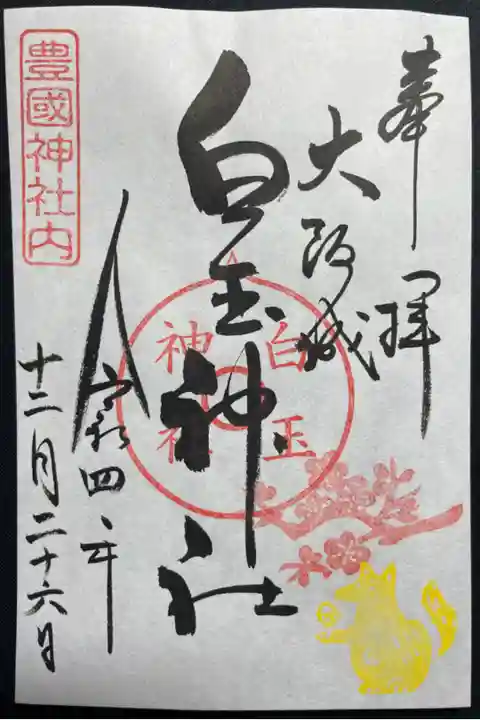 奉拝
大阪城
白玉神社
白玉神社
令和四年
十二月二十六日
豊國神社内